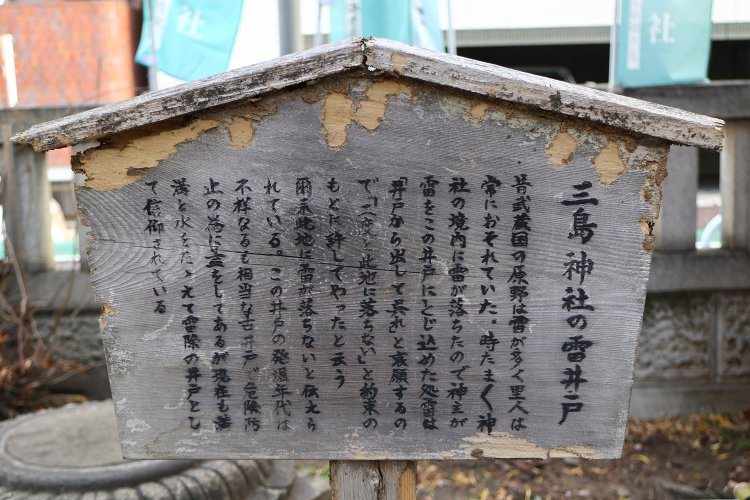 三島神社の雷井戸
昔武蔵国の原野は雷が多く里人は
常におそれていた。時たまく神
社の境内に雷が落ちたので神主が
雷をこの井戸にとじ込めた処雷は
「井戸から出して呉れ」と哀願するの
で「二度と此地に落ちない」と約束の
もとに許してやったと云う
爾来此地に雷が落ちないと伝えら
れている。この井戸の発掘年代は
不祥なるも相当な古井戸で危険防
止の為に蓋をしてあるが現在も満
満と水をたゝえて雷除の井戸とし
て信仰されている
社